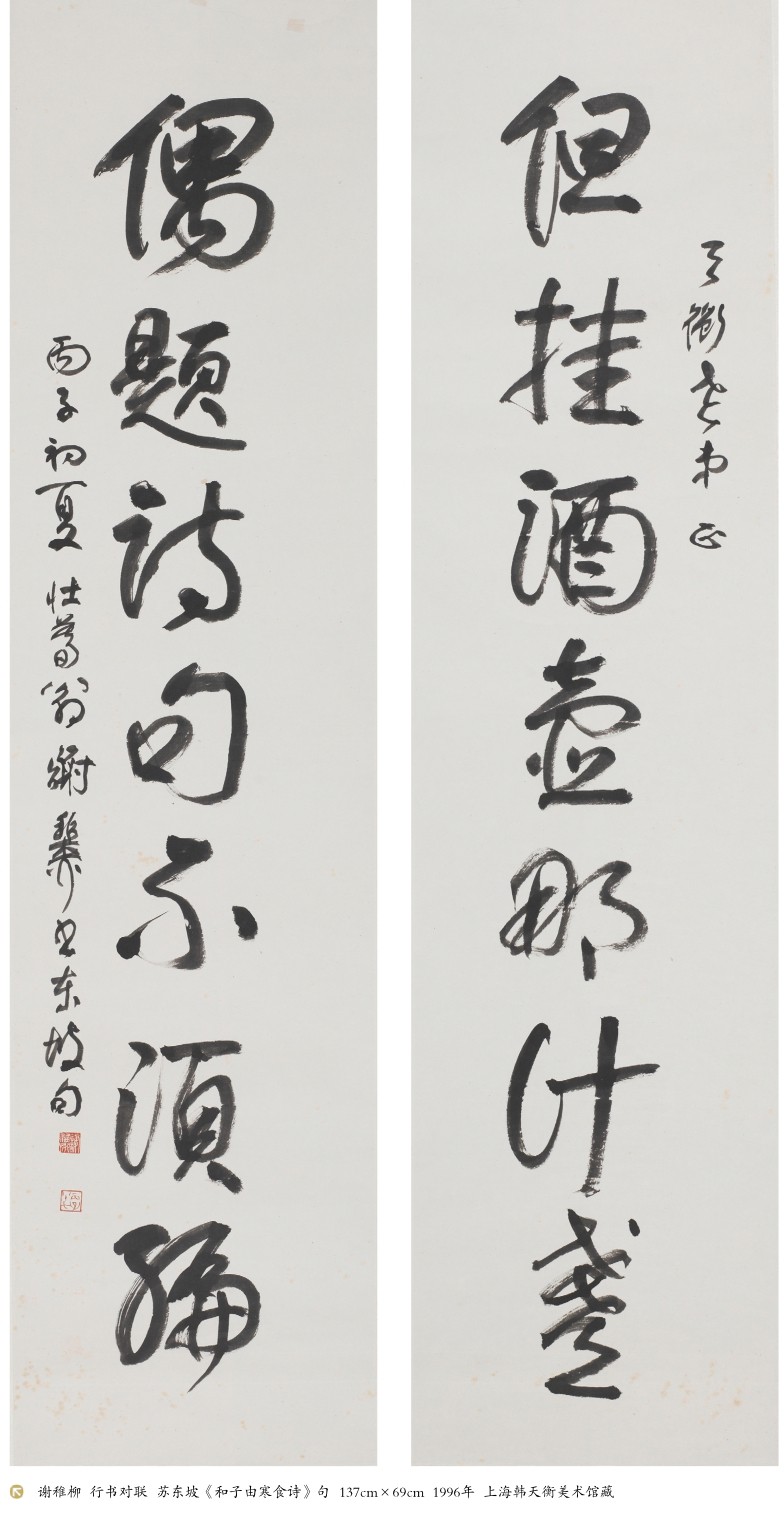 天衡老弟正
但挂酒壶那计盏
偶题诗句不须编
丙子初夏壮暮翁谢稚书东坡句
谢稚柳 行书对联 苏东坡《和子由寒食诗》句 137cm×69cm 1996年 上海韩天衡美术馆藏